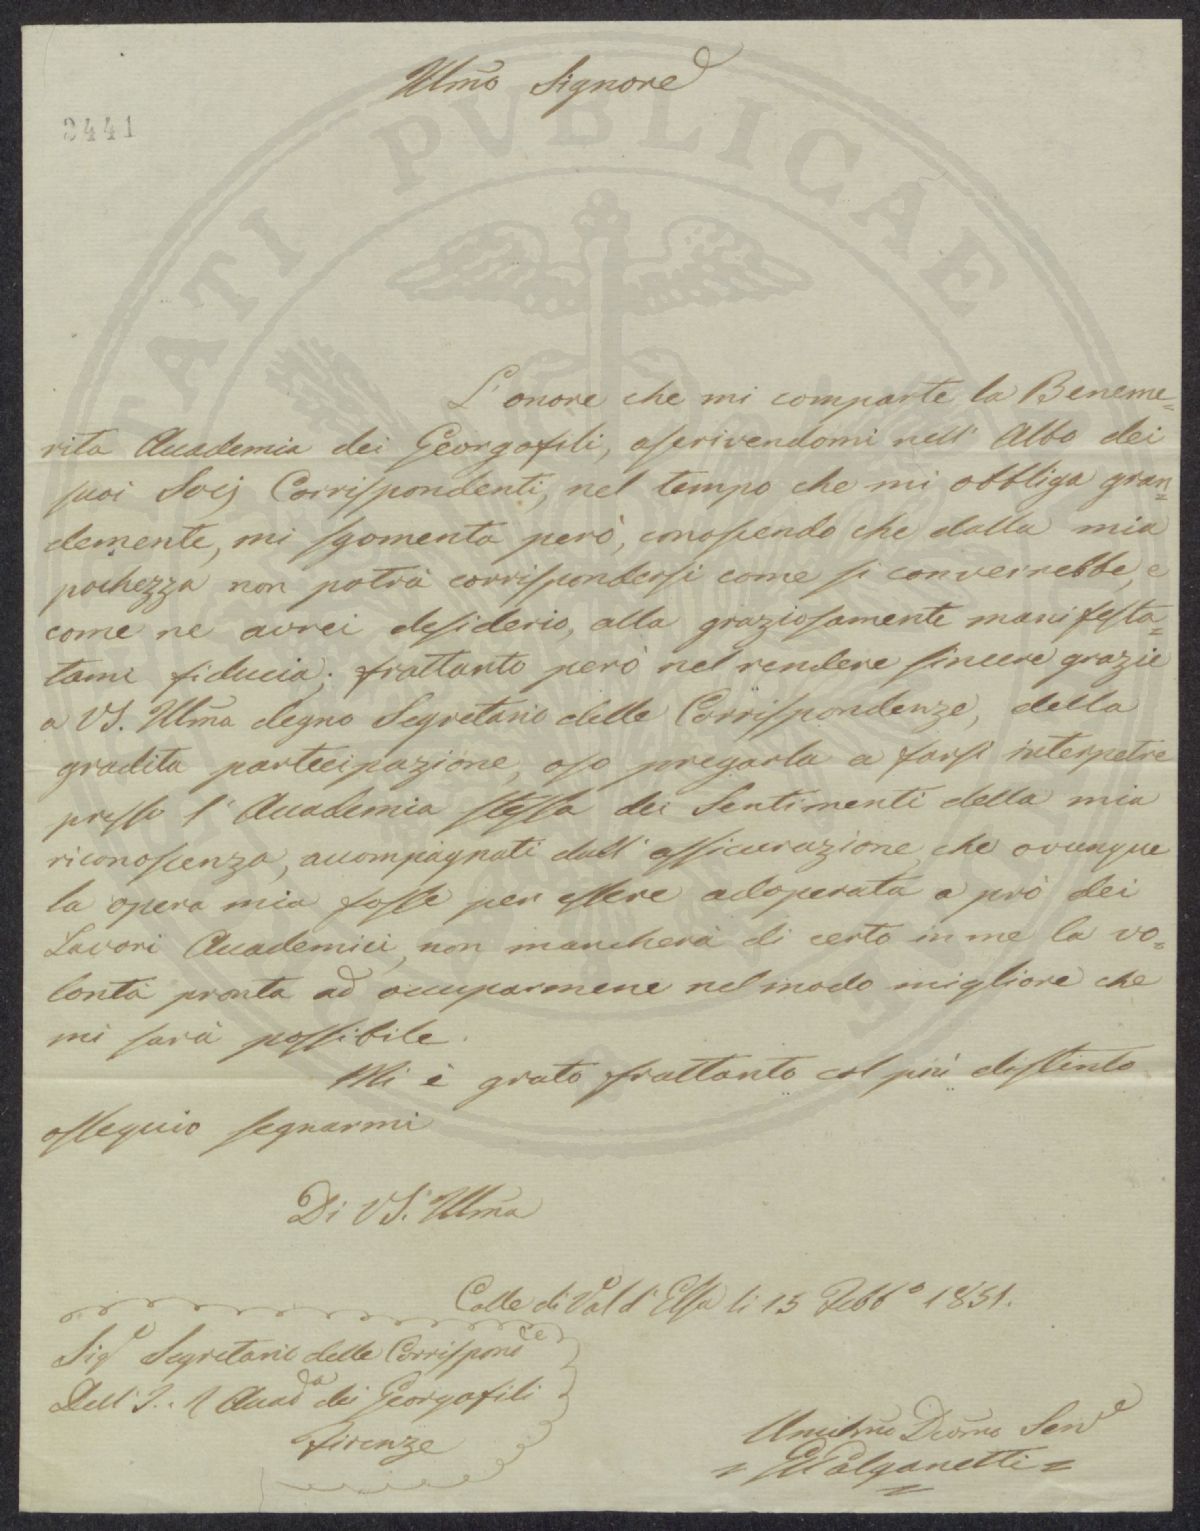 Illmo Signore
2441
L'onore che mi comparte la Beneme=
rita Accademia dei Georgofili, ascrivendomi nell' Albo dei
suoi Socj Corrispondenti, nel tempo che mi obbliga gran=
demente, mi sgomenta però, conoscendo che dalla mia
pochezza non potrà corrispondersi come si converrebbe, e
come ne avrei desiderio, alla graziosamente manifesta=
tami fiducia; frattanto però nel rendere sincere grazie
a VS. Illma degno Segretario delle Corrispondenze, della
gradita partecipazione, oso pregarla a farsi interpetre
presso l' Accademia stessa dei Sentimenti della mia
riconoscenza, accompagnati dall' assicurazione che ovunque
la opera mia fosse per essere adoperata a prò dei
Lavori Accademici, non mancherà di certo in me la vo=
lontà pronta ad occuparmene nel modo migliore che
mi sarà possibile.
Mi è grato frattanto col più distinto
ossequio segnarmi
Di VS. Illma
Colle di Val d' Elsa li 15 Febb.o 1851.
Sigr Segretario delle Corrispondce
Dell' I. R Accada dei Georgofili
Firenze
Umilmo Devmo Serve
PVBLICAE